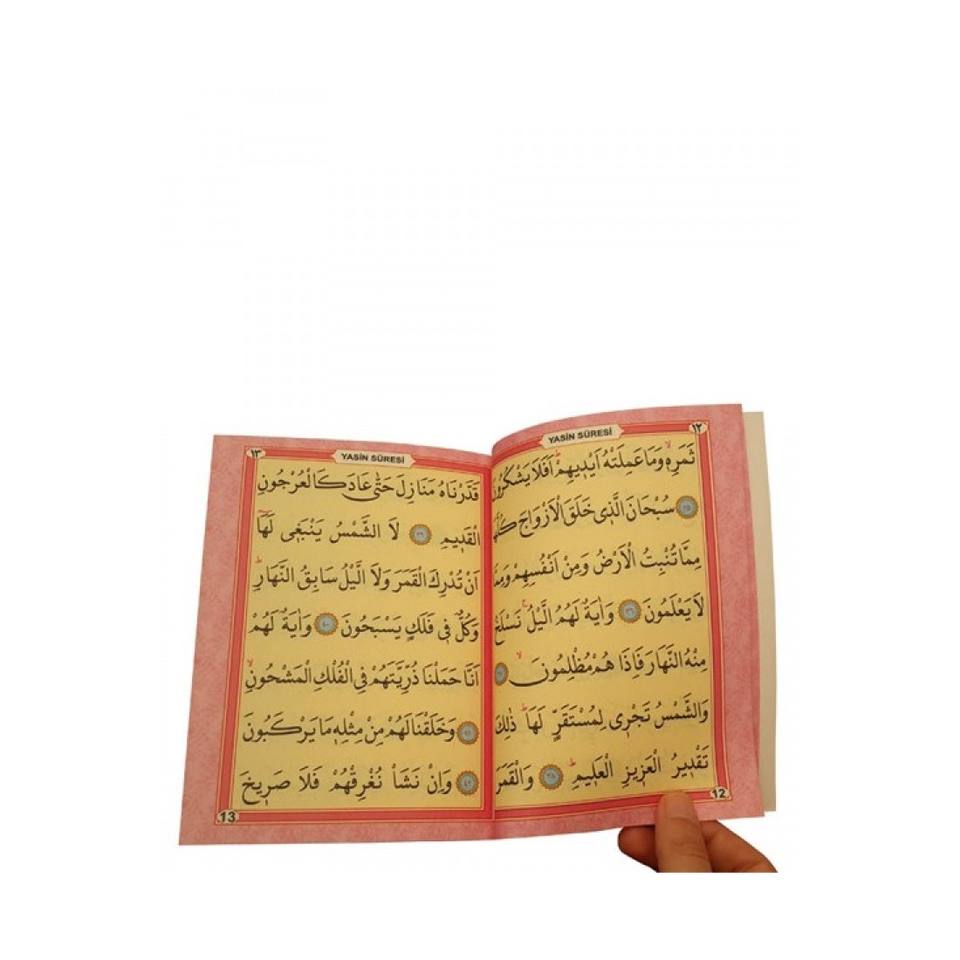 ١٢
YASİN SÛRESİ
ثَمَرِهِ وَمَا عَمِلَتْهُ اَيْدِيهِمْ اَفَلَا يَشْكُرُونَ
﴿٣٥﴾ سُبْحَانَ الَّذِي خَلَقَ الْاَزْوَاجَ كُلَّهَا
مِمَّا تُنْبِتُ الْاَرْضُ وَمِنْ اَنْفُسِهِمْ وَمِمَّا
لَا يَعْلَمُونَ ﴿٣٦﴾ وَاٰيَةٌ لَهُمُ الَّيْلُ نَسْلَخُ
مِنْهُ النَّهَارَ فَاِذَا هُمْ مُظْلِمُونَ
وَالشَّمْسُ تَجْرِي لِمُسْتَقَرٍّ لَهَا ذٰلِكَ
تَقْدِيرُ الْعَزِيزِ الْعَلِيمِ ﴿٣٨﴾ وَالْقَمَرَ
12
١٣
YASİN SÛRESİ
قَدَّرْنَاهُ مَنَازِلَ حَتّٰى عَادَ كَالْعُرْجُونِ
الْقَدِيمِ ﴿٣٩﴾ لَا الشَّمْسُ يَنْبَغِي لَهَا
اَنْ تُدْرِكَ الْقَمَرَ وَلَا الَّيْلُ سَابِقُ النَّهَارِ
وَكُلٌّ فِي فَلَكٍ يَسْبَحُونَ ﴿٤٠﴾ وَاٰيَةٌ لَهُمْ
اَنَّا حَمَلْنَا ذُرِّيَّتَهُمْ فِي الْفُلْكِ الْمَشْحُونِ
﴿٤١﴾ وَخَلَقْنَا لَهُمْ مِنْ مِثْلِهِ مَا يَرْكَبُونَ
﴿٤٢﴾ وَاِنْ نَشَأْ نُغْرِقْهُمْ فَلَا صَرِيخَ
13